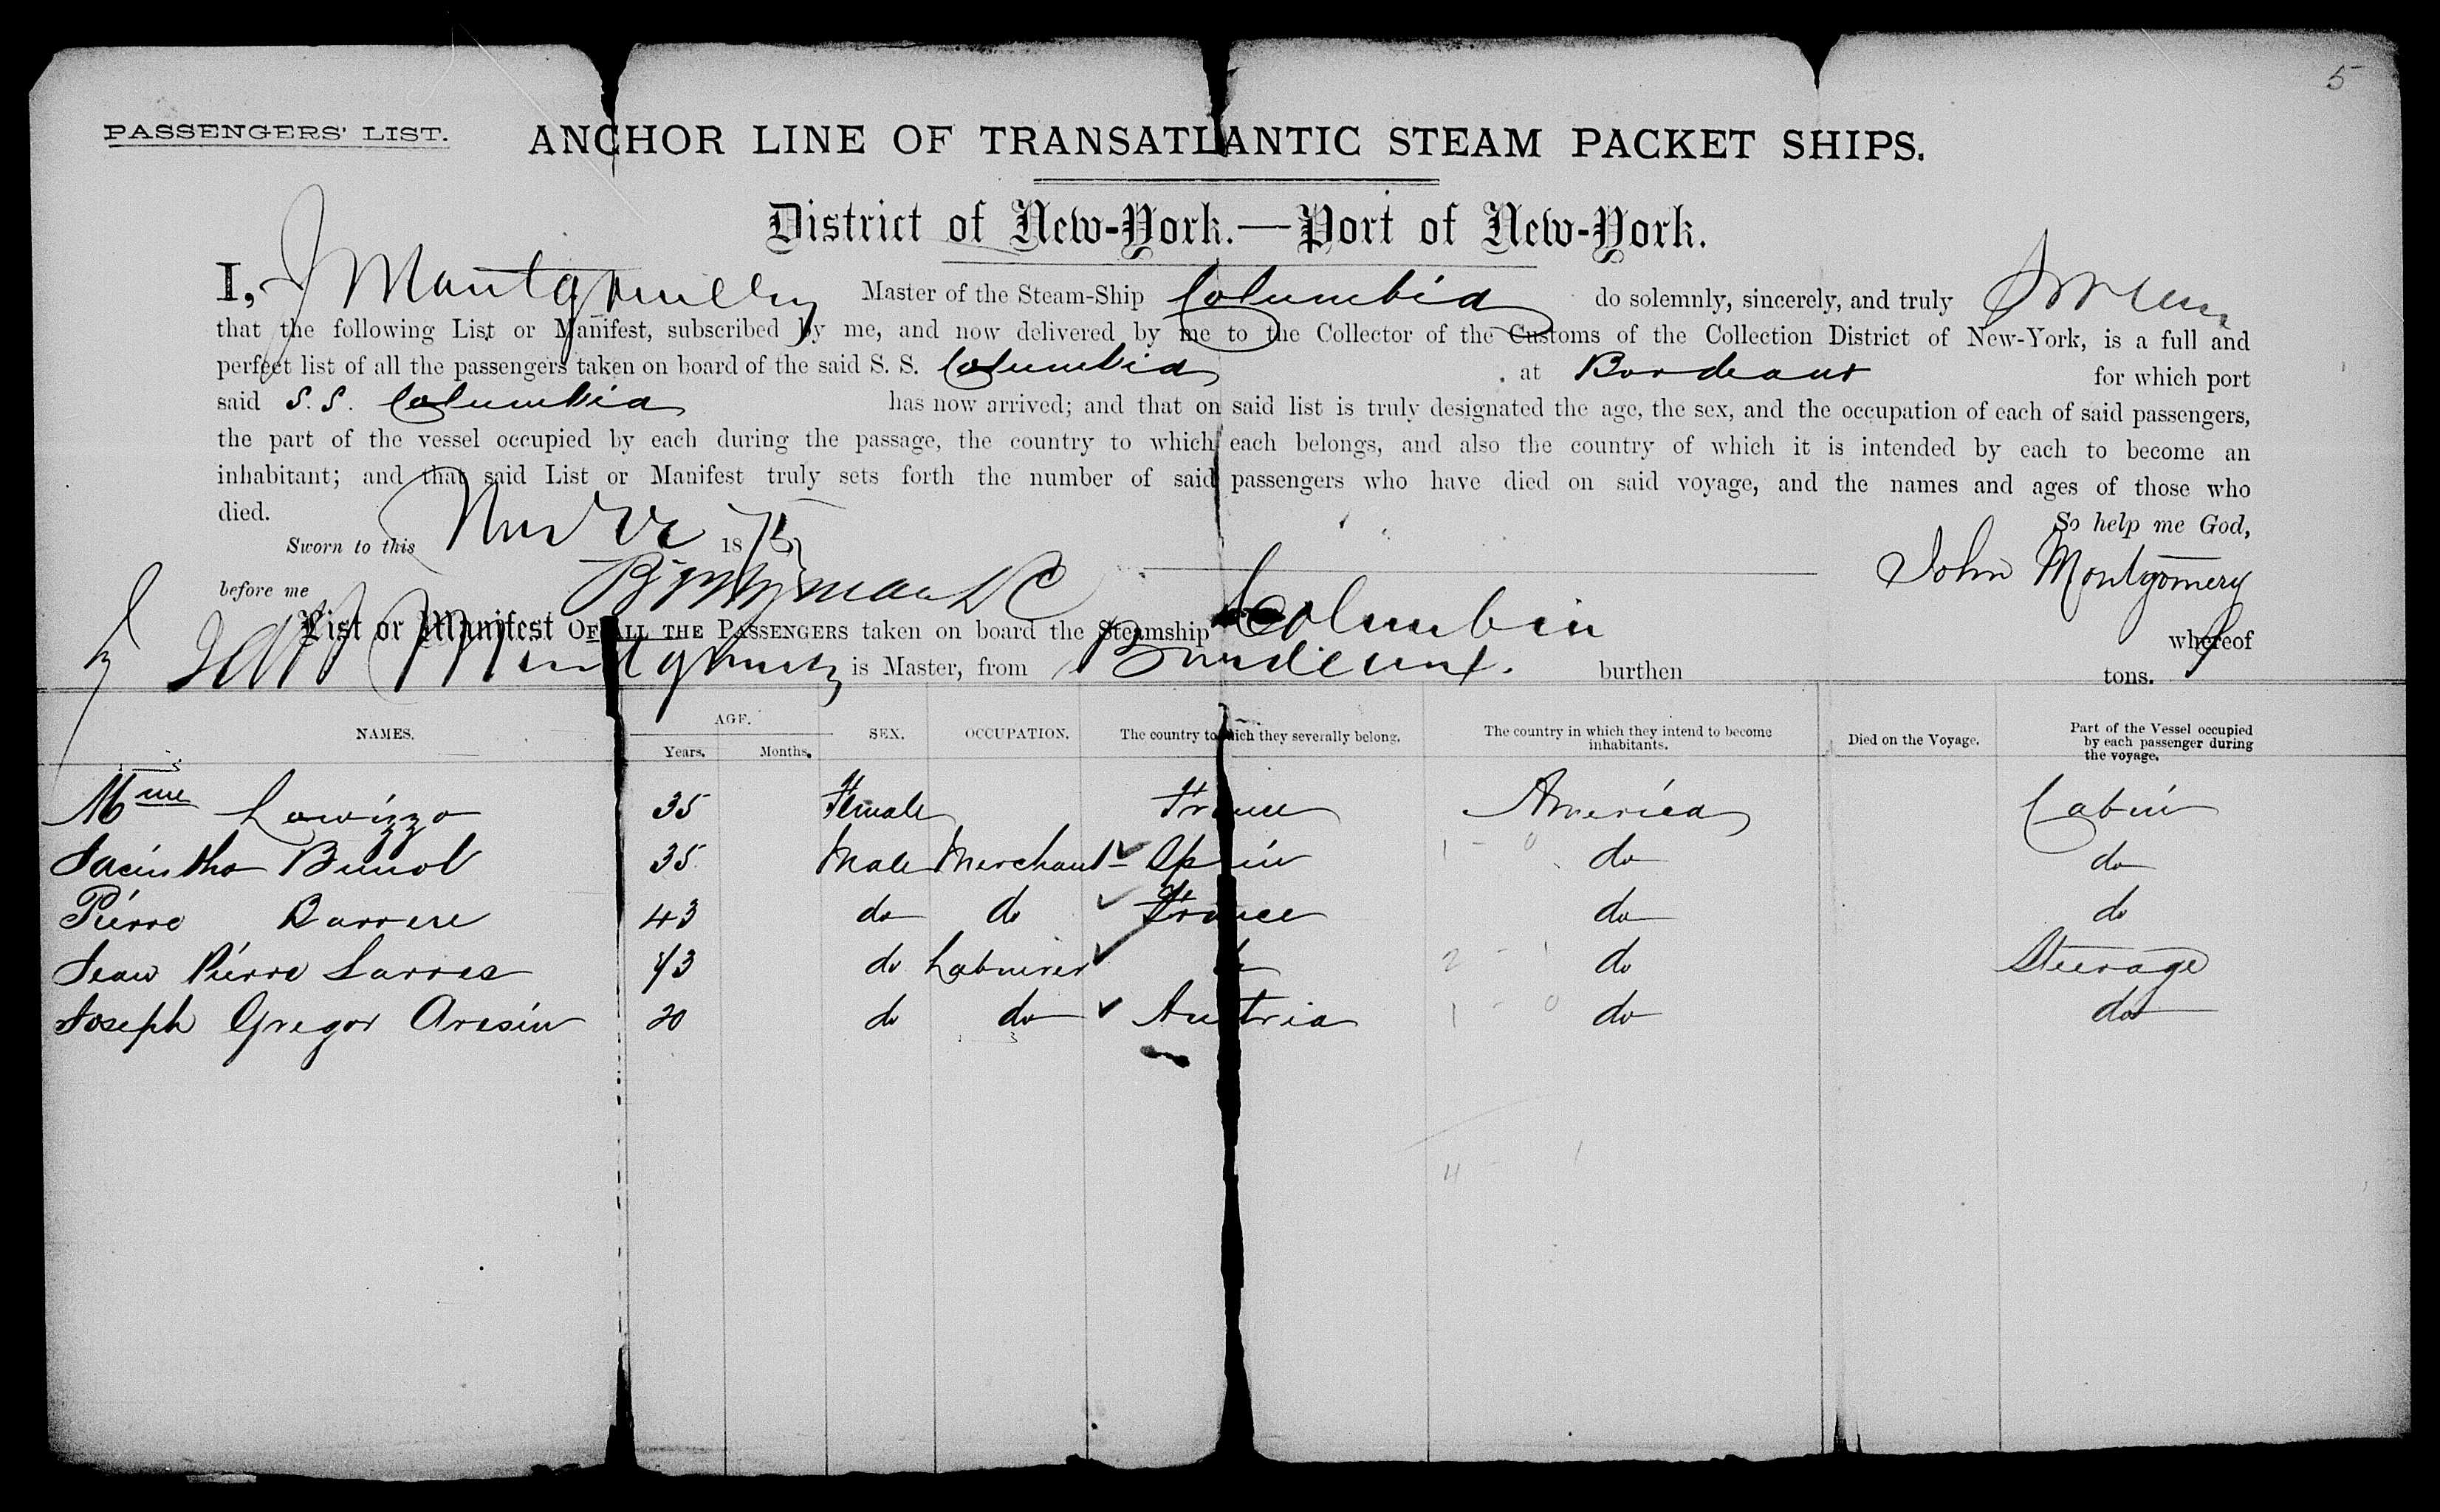 5
PASSENGERS' LIST. ANCHOR LINE OF TRANSATLANTIC STEAM PACKET SHIPS.
District of New-York.—Port of New-York.
I, J Montgomery Master of the Steam-Ship Columbia do solemnly, sincerely, and truly swear
that the following List or Manifest, subscribed by me, and now delivered by me to the Collector of the Customs of the Collection District of New-York, is a full and
perfect list of all the passengers taken on board of the said S. S. Columbia at Bordeaux for which port
said S.S. Columbia has now arrived; and that on said list is truly designated the age, the sex, and the occupation of each of said passengers,
the part of the vessel occupied by each during the passage, the country to which each belongs, and also the country of which it is intended by each to become an
inhabitant; and that said List or Manifest truly sets forth the number of said passengers who have died on said voyage, and the names and ages of those who
died. So help me God,
Sworn to this Nov 22 1875
before me John Montgomery
List or Manifest OF ALL THE PASSENGERS taken on board the Steamship Columbia whereof
Montgomery is Master, from Bordeaux. burthen tons.
NAMES. AGE. Years. Months. SEX. OCCUPATION. The country to which they severally belong. The country in which they intend to become inhabitants. Died on the Voyage. Part of the Vessel occupied by each passenger during the voyage.
Mme Lowizzo 35 Female France America Cabin
Jacintho Bunol 35 Male Merchant Spain do do
Pierre Barrere 43 do do France do do
Jean Pierre Larres 43 do Labourer do do Steerage
Joseph Gregor Aresin 20 do do Austria do do